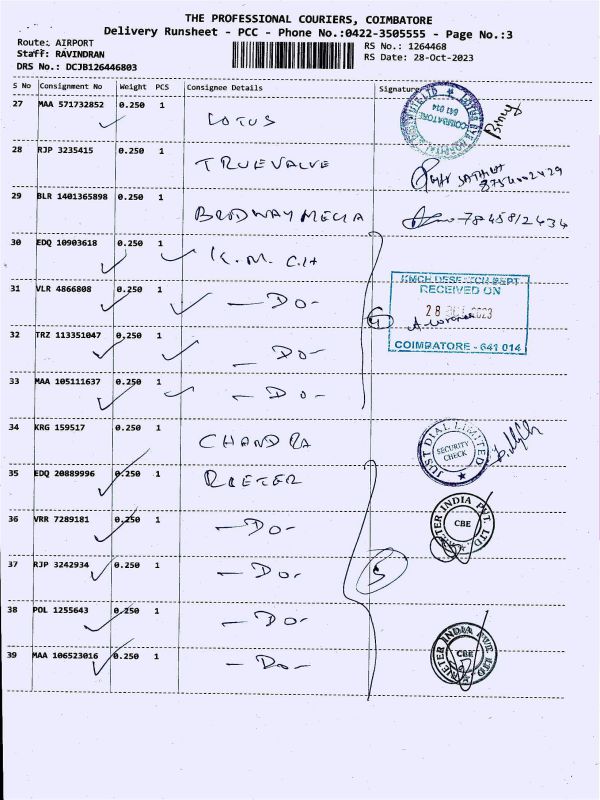 THE PROFESSIONAL COURIERS, COIMBATORE
Delivery Runsheet - PCC - Phone No.:0422-3505555 - Page No.:3
Route: AIRPORT
Staff: RAVINDRAN
DRS No.: DCJB126446803
RS No.: 1264468
RS Date: 28-Oct-2023
S No Consignment No Weight PCS Consignee Details Signature
27 MAA 571732852 0.250 1 LOTUS
28 RJP 3235415 0.250 1 TRUEVALVE 8754002429
29 BLR 1401365898 0.250 1 BRODWAY MECIA
30 EDQ 10903618 0.250 1 K.M.CH
31 VLR 4866808 0.250 1 - DO -
32 TRZ 113351047 0.250 1 - DO -
33 MAA 105111637 0.250 1 - DO -
4
RECEIVED ON
2023
COIMBATORE - 641 014
34 KRG 159517 0.250 1 CHANDRA
JUST DIAL LIMITED
SECURITY CHECK
35 EDQ 20889996 0.250 1 RIETER
36 VRR 7289181 0.250 1 - DO -
INDIA PVT. LTD
CBE
37 RJP 3242934 0.250 1 - DO -
5
38 POL 1255643 0.250 1 - DO -
39 MAA 106523016 0.250 1 - DO -
INDIA PVT. LTD
CBE